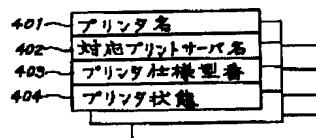 401 プリンタ名
402 対応プリントサーバ名
403 プリンタ仕様型番
404 プリンタ状態